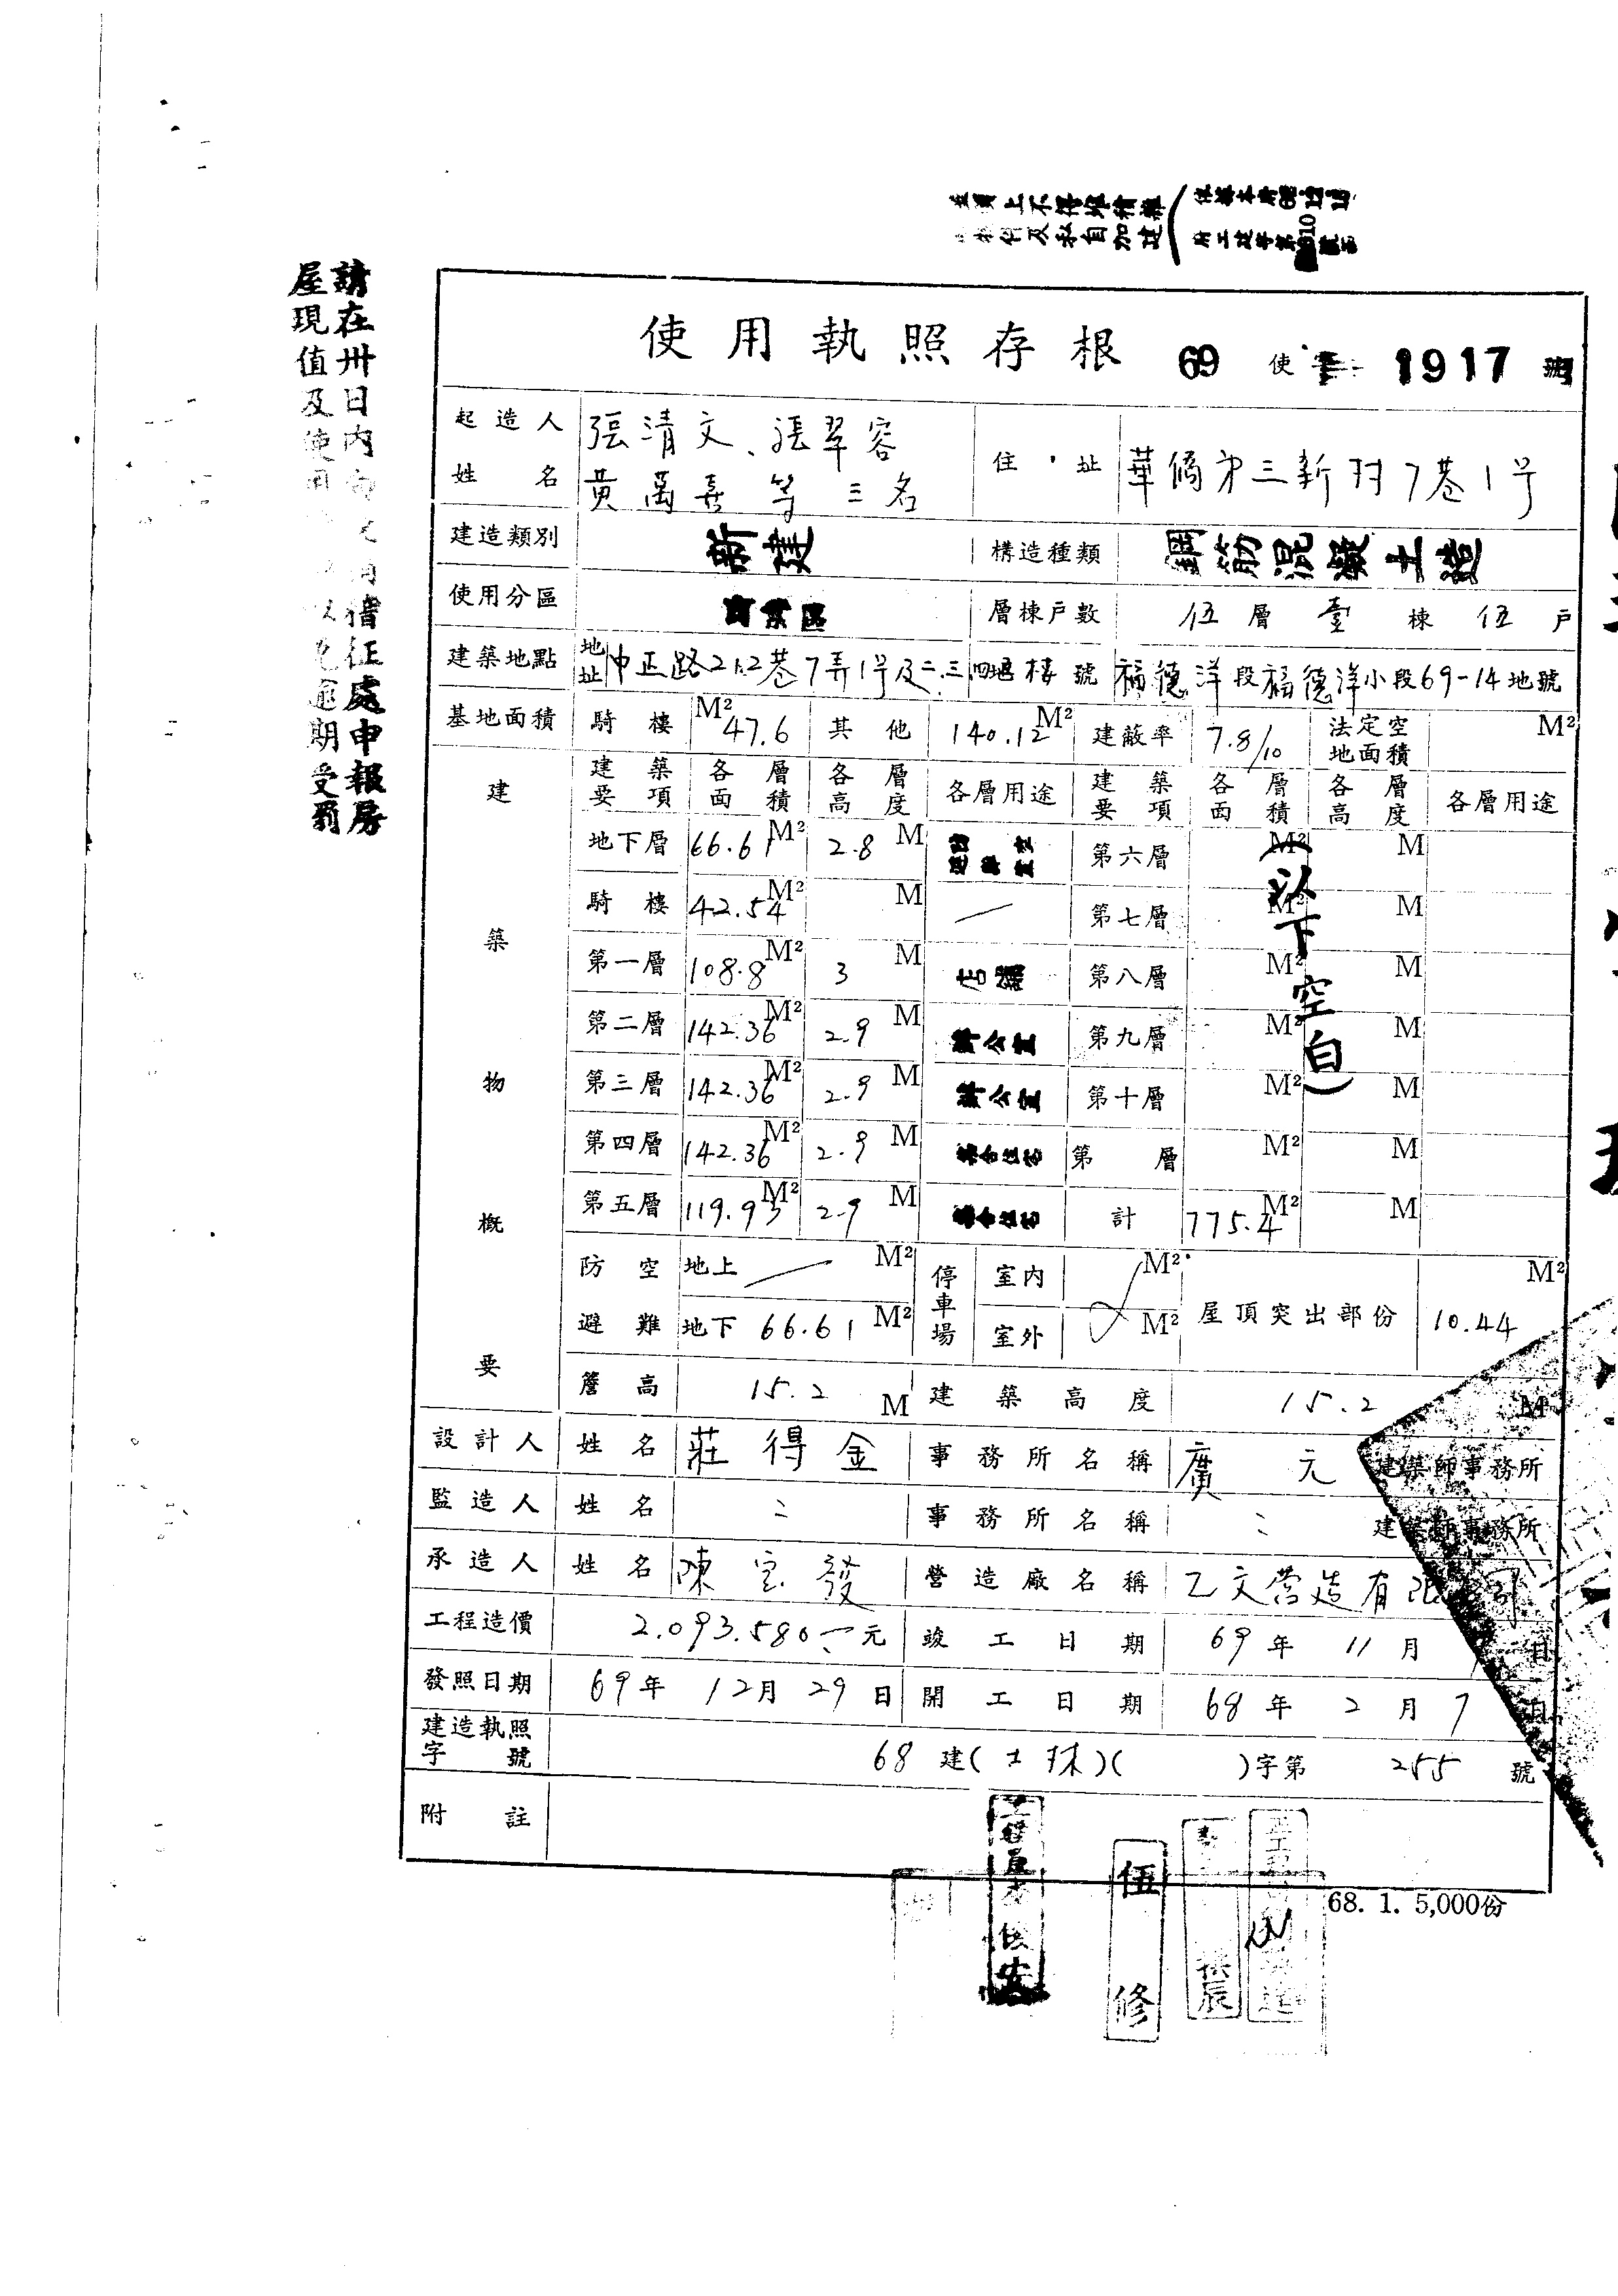 請在卅日內
稽征處申報房
屋現值及使用
逾期受罰
使用執照存根 69 使字 1917 號
起造人姓名 張清文、張翠容 黃萬喜等三名 住址 華僑第三新村7巷1号
建造類別 新建 構造種類 鋼筋混凝土造
使用分區 層棟戶數 伍層壹棟伍戶
建築地點 地址 中正路212巷7弄1号及二.三.四.五樓 號 福德洋段福德洋小段69-14地號
基地面積 騎樓 47.6 M² 其他 140.12 M² 建蔽率 7.8/10 法定空地面積 M²
建築物概要
建築要項 各層面積 各層高度 各層用途 建築要項 各層面積 各層高度 各層用途
地下層 66.61 M² 2.8 M 第六層 M² M
騎樓 42.54 M² M — 第七層 M² M
第一層 108.8 M² 3 M 店舖 第八層 M² M
第二層 142.36 M² 2.9 M 辦公室 第九層 M² M
第三層 142.36 M² 2.9 M 辦公室 第十層 M² M
第四層 142.36 M² 2.9 M 集合住宅 第 層 M² M
第五層 119.93 M² 2.9 M 集合住宅 計 775.4 M² M
(以下空白)
防空避難 地上 — M² 停車場 室內 M² 屋頂突出部份 10.44 M²
地下 66.61 M² 室外 M²
簷高 15.2 M 建築高度 15.2 M
設計人 姓名 莊得金 事務所名稱 廣元 建築師事務所
監造人 姓名 〃 事務所名稱 〃 建築師事務所
承造人 姓名 陳 發 營造廠名稱 乙文營造有限 司
工程造價 2.093.580 元 竣工日期 69年11月 日
發照日期 69年12月29日 開工日期 68年2月7日
建造執照字號 68 建( )( )字第 255 號
附註
68. 1. 5,000份
伍 修